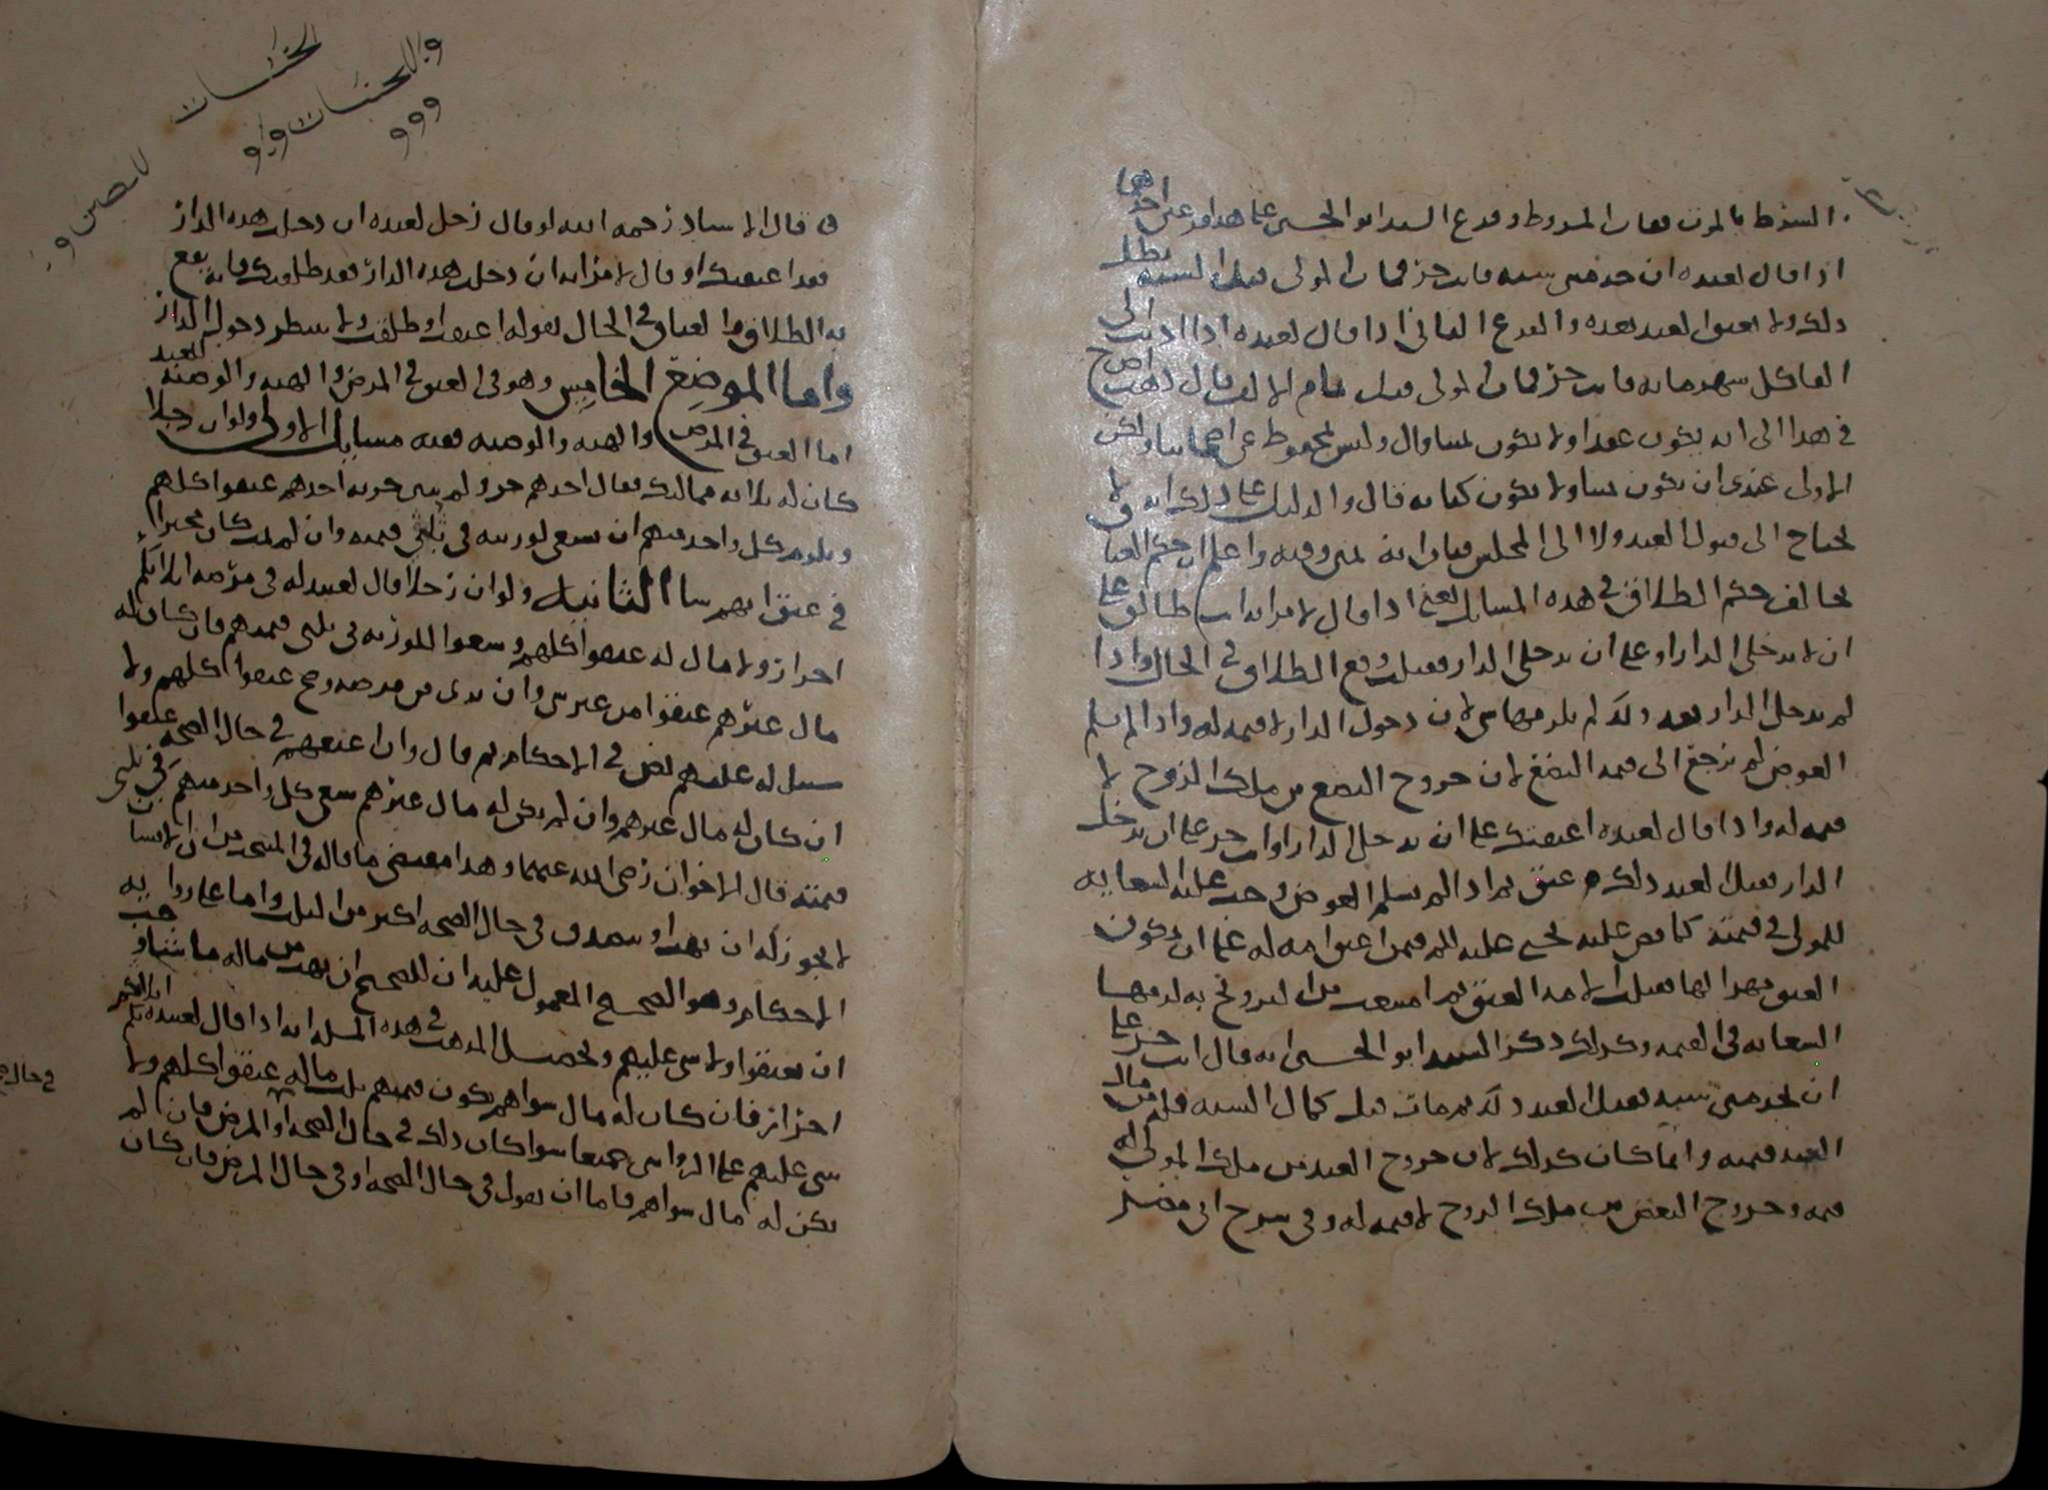 الشرط بالموت فمات المشروط وفرع السيد ابو الحسين على هذا فرعين احدهما
اذا قال لعبده ان خدمتني سنة فانت حر فمات المولى قبل السنة بطل
ذلك ولا يعتق العبد بعده والفرع الثاني اذا قال لعبده اذا اديت الي
الفا كل شهر مائة فانت حر فمات المولى قبل تمام الالف قال
في هذا الى انه يكون عقدا ولا يكون وليس بمحفوظ عن اصحابنا ولكن
الاولى عندي ان يكون ولا يكون كتابة قال والدليل على ذلك انه لا
يحتاج الى قبول العبد ولا الى المجلس واعلم ان حكم العتاق
يخالف حكم الطلاق في هذه المسايل يعني اذا قال لامراته انت طالق على
ان لا تدخلي الدار او على ان تدخلي الدار فقبلت وقع الطلاق في الحال واذا
لم تدخل الدار بعد ذلك لم يلزمها شي لان دخول الدار لا قيمة له واذا لم يسلم
العوض لم يرجع الى قيمة البضع لان خروج البضع من ملك الزوج لا
قيمة له واذا قال لعبده اعتقتك على ان تدخل الدار او انت حر على ان تدخل
الدار فقبل العبد ذلك عتق ثم اذا لم يسلم العوض وجب عليه السعاية
للمولى في قيمته كما نص عليه يحيى عليه السلم فيمن اعتق امة له على ان يكون
العتق مهرا لها فقبلت الامة العتق ثم امتنعت من التزويج به لزمها
السعاية في القيمة وكذلك ذكر السيد ابو الحسين انه قال انت حر على
ان تخدمني سنة فقبل العبد ذلك ثم مات قبل كمال السنة فله من مال
العبد قيمته وانما كان كذلك لان خروج العبد من ملك المولى له
قيمة وخروج البضع من ملك الزوج لا قيمة له وفي شرح ابي مضر
قال الاستاذ رحمه الله لو قال رجل لعبده ان دخلت هذه الدار
فقد اعتقتك او قال لامراته ان دخلت هذه الدار فقد طلقتك فانه يقع
به الطلاق والعتاق في الحال بقوله اعتقت وطلقت ولا ينتظر دخول الدار
واما الموضع الخامس وهو في العتق في المرض والهبة والوصية للعبد
اما العتق في المرض والهبة والوصية ففيه مسايل الاولى ولو ان رجلا
كان له ثلاثة مماليك فقال احدهم حر ولم يبين حرية احدهم عتقوا كلهم
ويلزم كل واحد منهم ان يسعى لورثته في ثلثي قيمته وان لم يمت كان مخيرا
في عتق ايهم شا الثانية ولو ان رجلا قال لعبيد له في مرضه ايها لكم
احرار ولا مال له عتقوا كلهم وسعوا للورثة في ثلثي قيمتهم فان كان له
مال غيرهم عتقوا من غير شي وان برى من مرضه وصح عتقوا كلهم ولا
سبيل له عليهم نص في الاحكام ثم قال وان اعتقهم في حال الصحة عتقوا
ان كان له مال غيرهم وان لم يكن له مال غيرهم سعى كل واحد منهم في ثلثي
قيمته قال الاخوان رضي الله عنهما وهذا مقتضى ما قاله في المنتخب من ان الانسان
لا يجوز له ان يهب او يتصدق في حال الصحة اكثر من الثلث واما على رواية
الاحكام وهو الصحيح المعمول عليه ان للصحيح ان يهب من ماله ما شا
ان يعتقوا ولا شي عليهم وتحصيل المذهب في هذه المسلة انه اذا قال لعبيده
احرار فان كان له مال سواهم يكون قيمتهم ثلث ماله عتقوا كلهم ولا
شي عليهم على الروايتين جميعا سوا كان ذلك في حال الصحة او المرض فان لم
يكن له مال سواهم فاما ان يقول في حال الصحة او في حال المرض فان كان